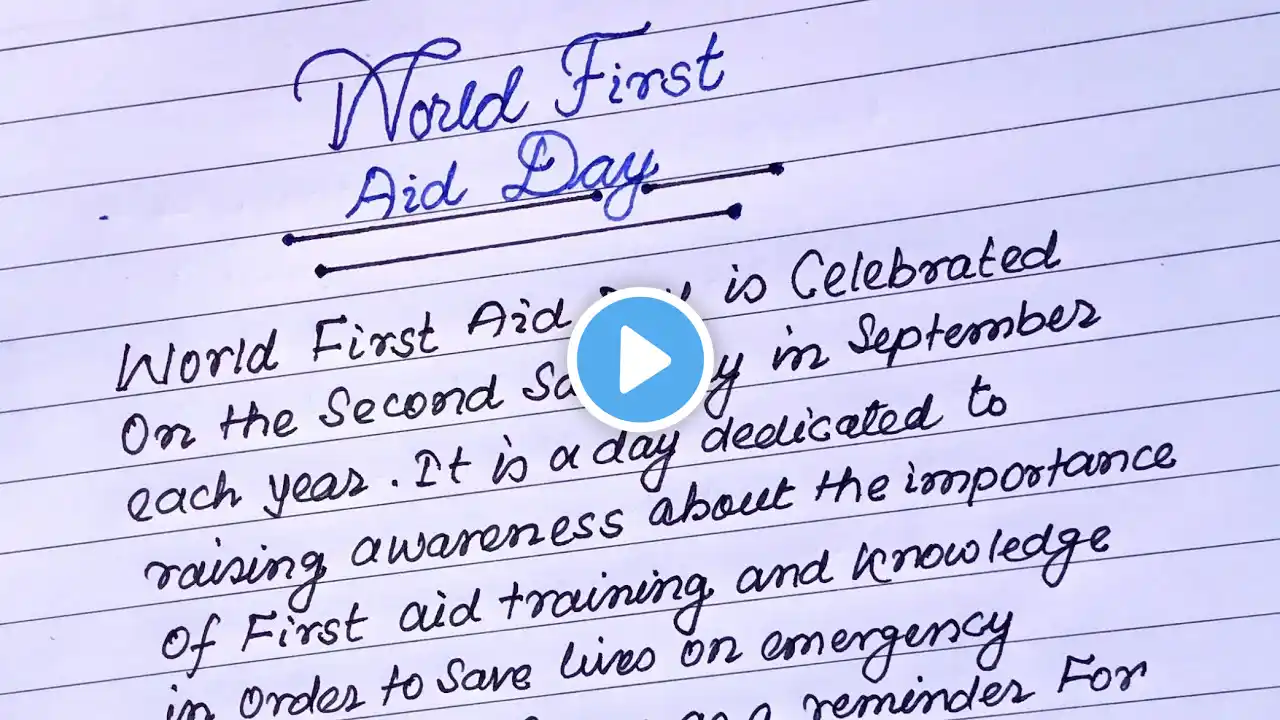 World First
Aid Day
World First Aid is Celebrated
On the Second in September
each year. It is a day dedicated to
raising awareness about the importance
of First aid training and knowledge
in order to save lives on emergency
reminder For